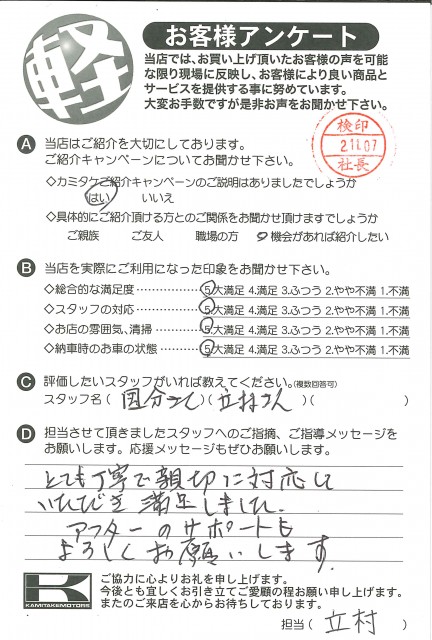 軽
お客様アンケート
当店では、お買い上げ頂いたお客様の声を可能
な限り現場に反映し、お客様により良い商品と
サービスを提供する事に努めています。
大変お手数ですが是非お声をお聞かせ下さい。
検印
21.11.07
社長
A 当店はご紹介を大切にしております。
ご紹介キャンペーンについてお聞かせ下さい。
◇カミタケご紹介キャンペーンのご説明はありましたでしょうか
はい いいえ
◇具体的にご紹介頂ける方とのご関係をお聞かせ頂けますでしょうか
ご親族 ご友人 職場の方 機会があれば紹介したい
B 当店を実際にご利用になった印象をお聞かせ下さい。
◇総合的な満足度 ……………… 5.大満足 4.満足 3.ふつう 2.やや不満 1.不満
◇スタッフの対応 ……………… 5.大満足 4.満足 3.ふつう 2.やや不満 1.不満
◇お店の雰囲気、清掃 ………… 5.大満足 4.満足 3.ふつう 2.やや不満 1.不満
◇納車時のお車の状態 ………… 5.大満足 4.満足 3.ふつう 2.やや不満 1.不満
C 評価したいスタッフがいれば教えてください。(複数回答可)
スタッフ名 ( 国分さん )( 立村さん )( )
D 担当させて頂きましたスタッフへのご指摘、ご指導メッセージを
お願いします。応援メッセージもぜひお願いします。
とても丁寧で親切に対応して
いただき満足しました。
アフターのサポートも
よろしくお願いします。
K
KAMITAKEMOTORS
ご協力に心よりお礼を申し上げます。
今後とも宜しくお引き立てご愛顧の程お願い申し上げます。
またのご来店を心からお待ちしております。
担当 ( 立村 )